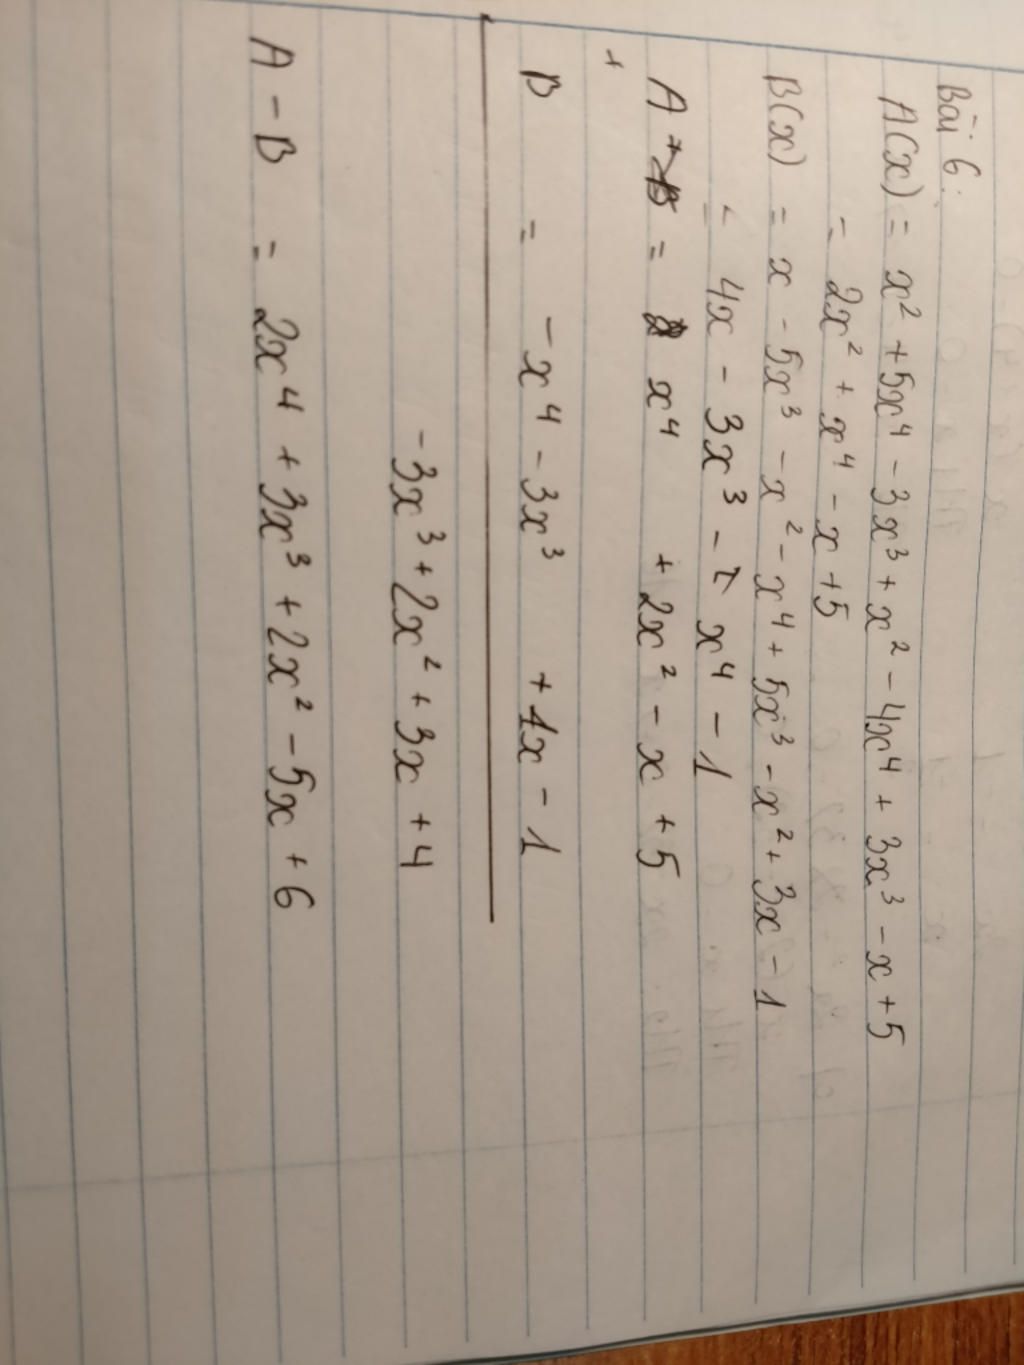 Bài 6:
A(x) = x² + 5x⁴ - 3x³ + x² - 4x⁴ + 3x³ - x + 5
= 2x² + x⁴ - x + 5
B(x) = x - 5x³ - x² - x⁴ + 5x³ - x² + 3x - 1
= 4x - 3x³ - x⁴ - 1
A = x⁴ + 2x² - x + 5
+
B = - x⁴ - 3x³ + 4x - 1
- 3x³ + 2x² + 3x + 4
A - B = 2x⁴ + 3x³ + 2x² - 5x + 6